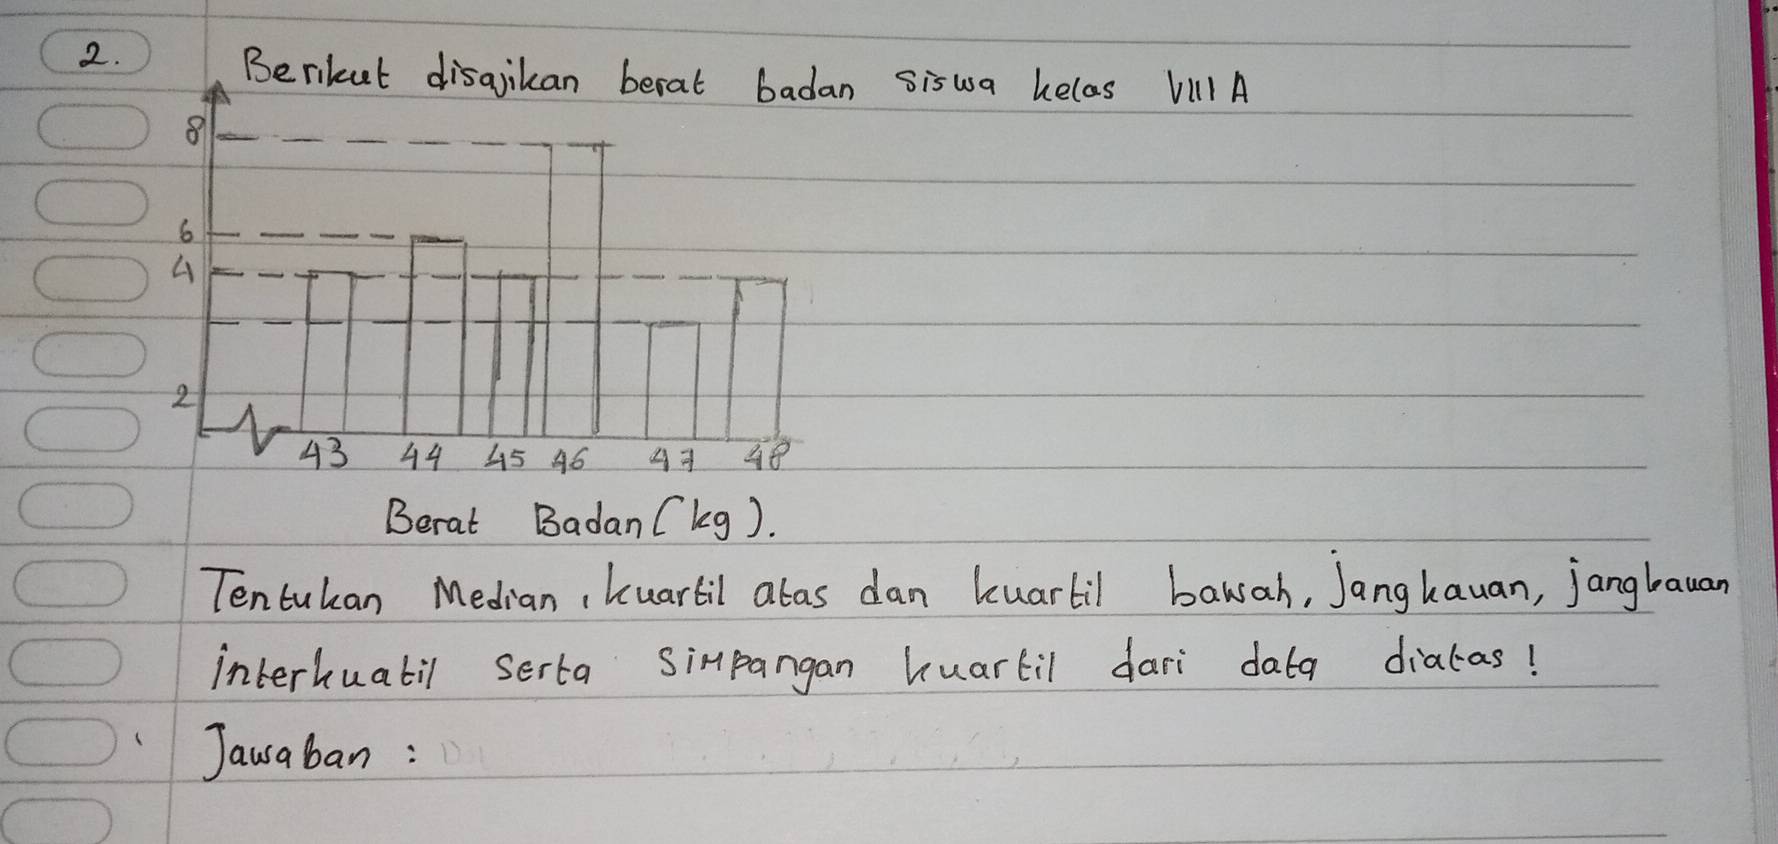 2. Berikut disajikan berat badan siswa kelas VIII A
8
6
4
2
43 44 45 46 47 48
Berat Badan (kg).
Tentukan Median, kuartil atas dan kuartil bawah, Jangkauan, jangkauan
interkuatil serta simpangan kuartil dari data diatas!
Jawaban :